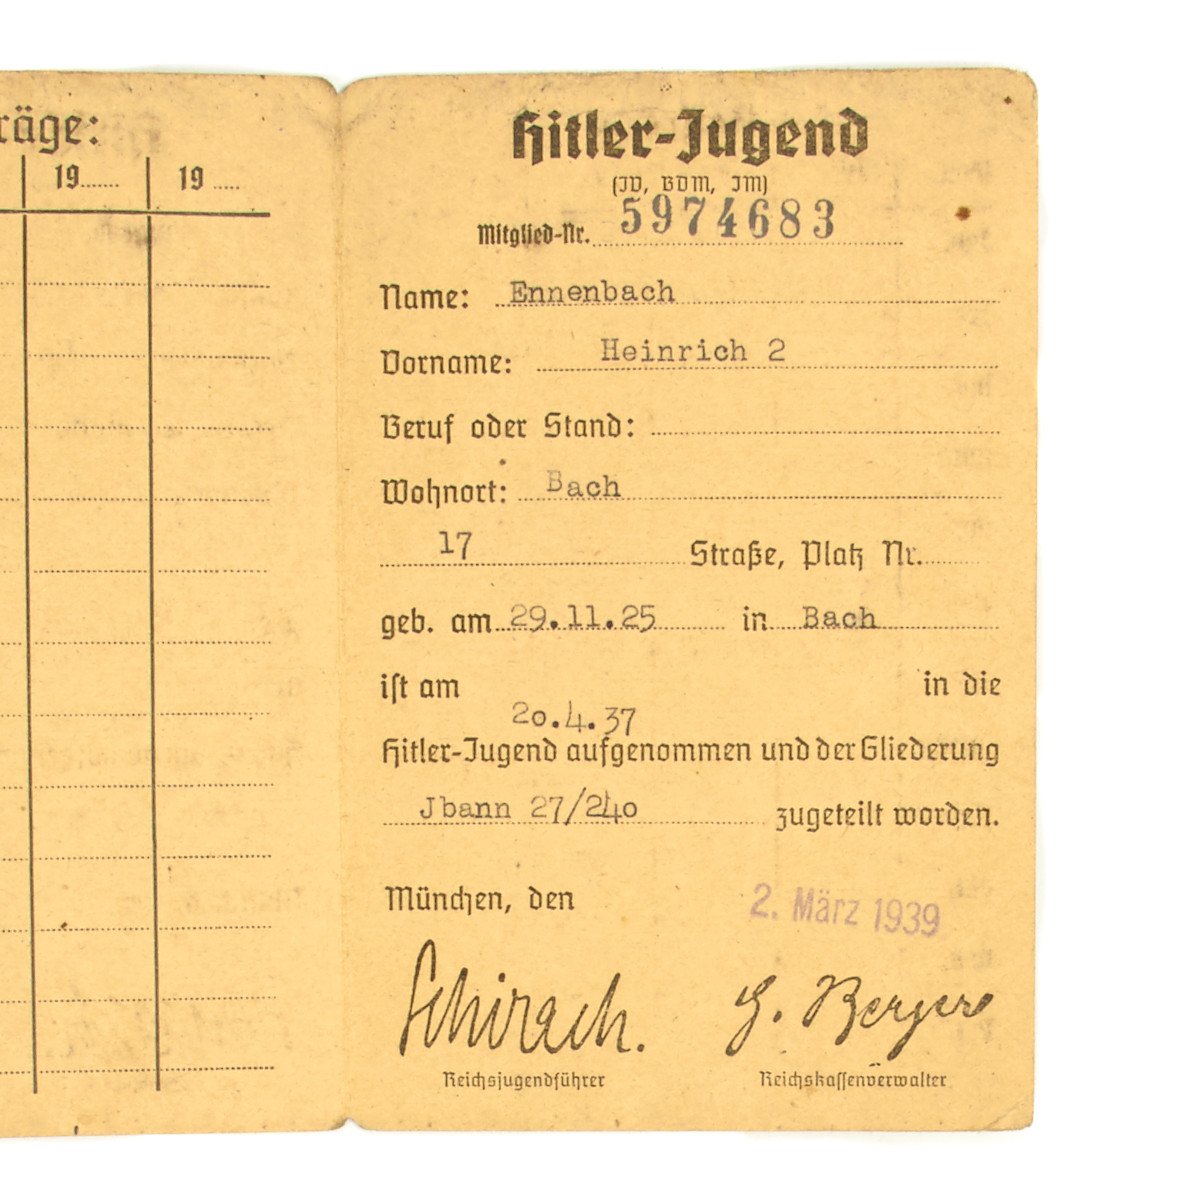 räge:
19...... 19.....
Hitler-Jugend
(JV, BDM, JM)
Mitglied-Nr. 5974683
Name: Ennenbach
Vorname: Heinrich 2
Beruf oder Stand:
Wohnort: Bach
17 Straße, Platz Nr.
geb. am 29.11.25 in Bach
ist am in die
20.4.37
Hitler-Jugend aufgenommen und der Gliederung
Jbann 27/240 zugeteilt worden.
München, den 2. März 1939
Schirach. G. Berger
Reichsjugendführer Reichskassenverwalter